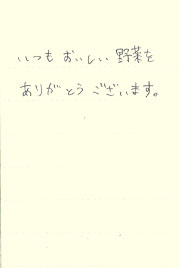 いつも おいしい 野菜を
ありがとう ございます。